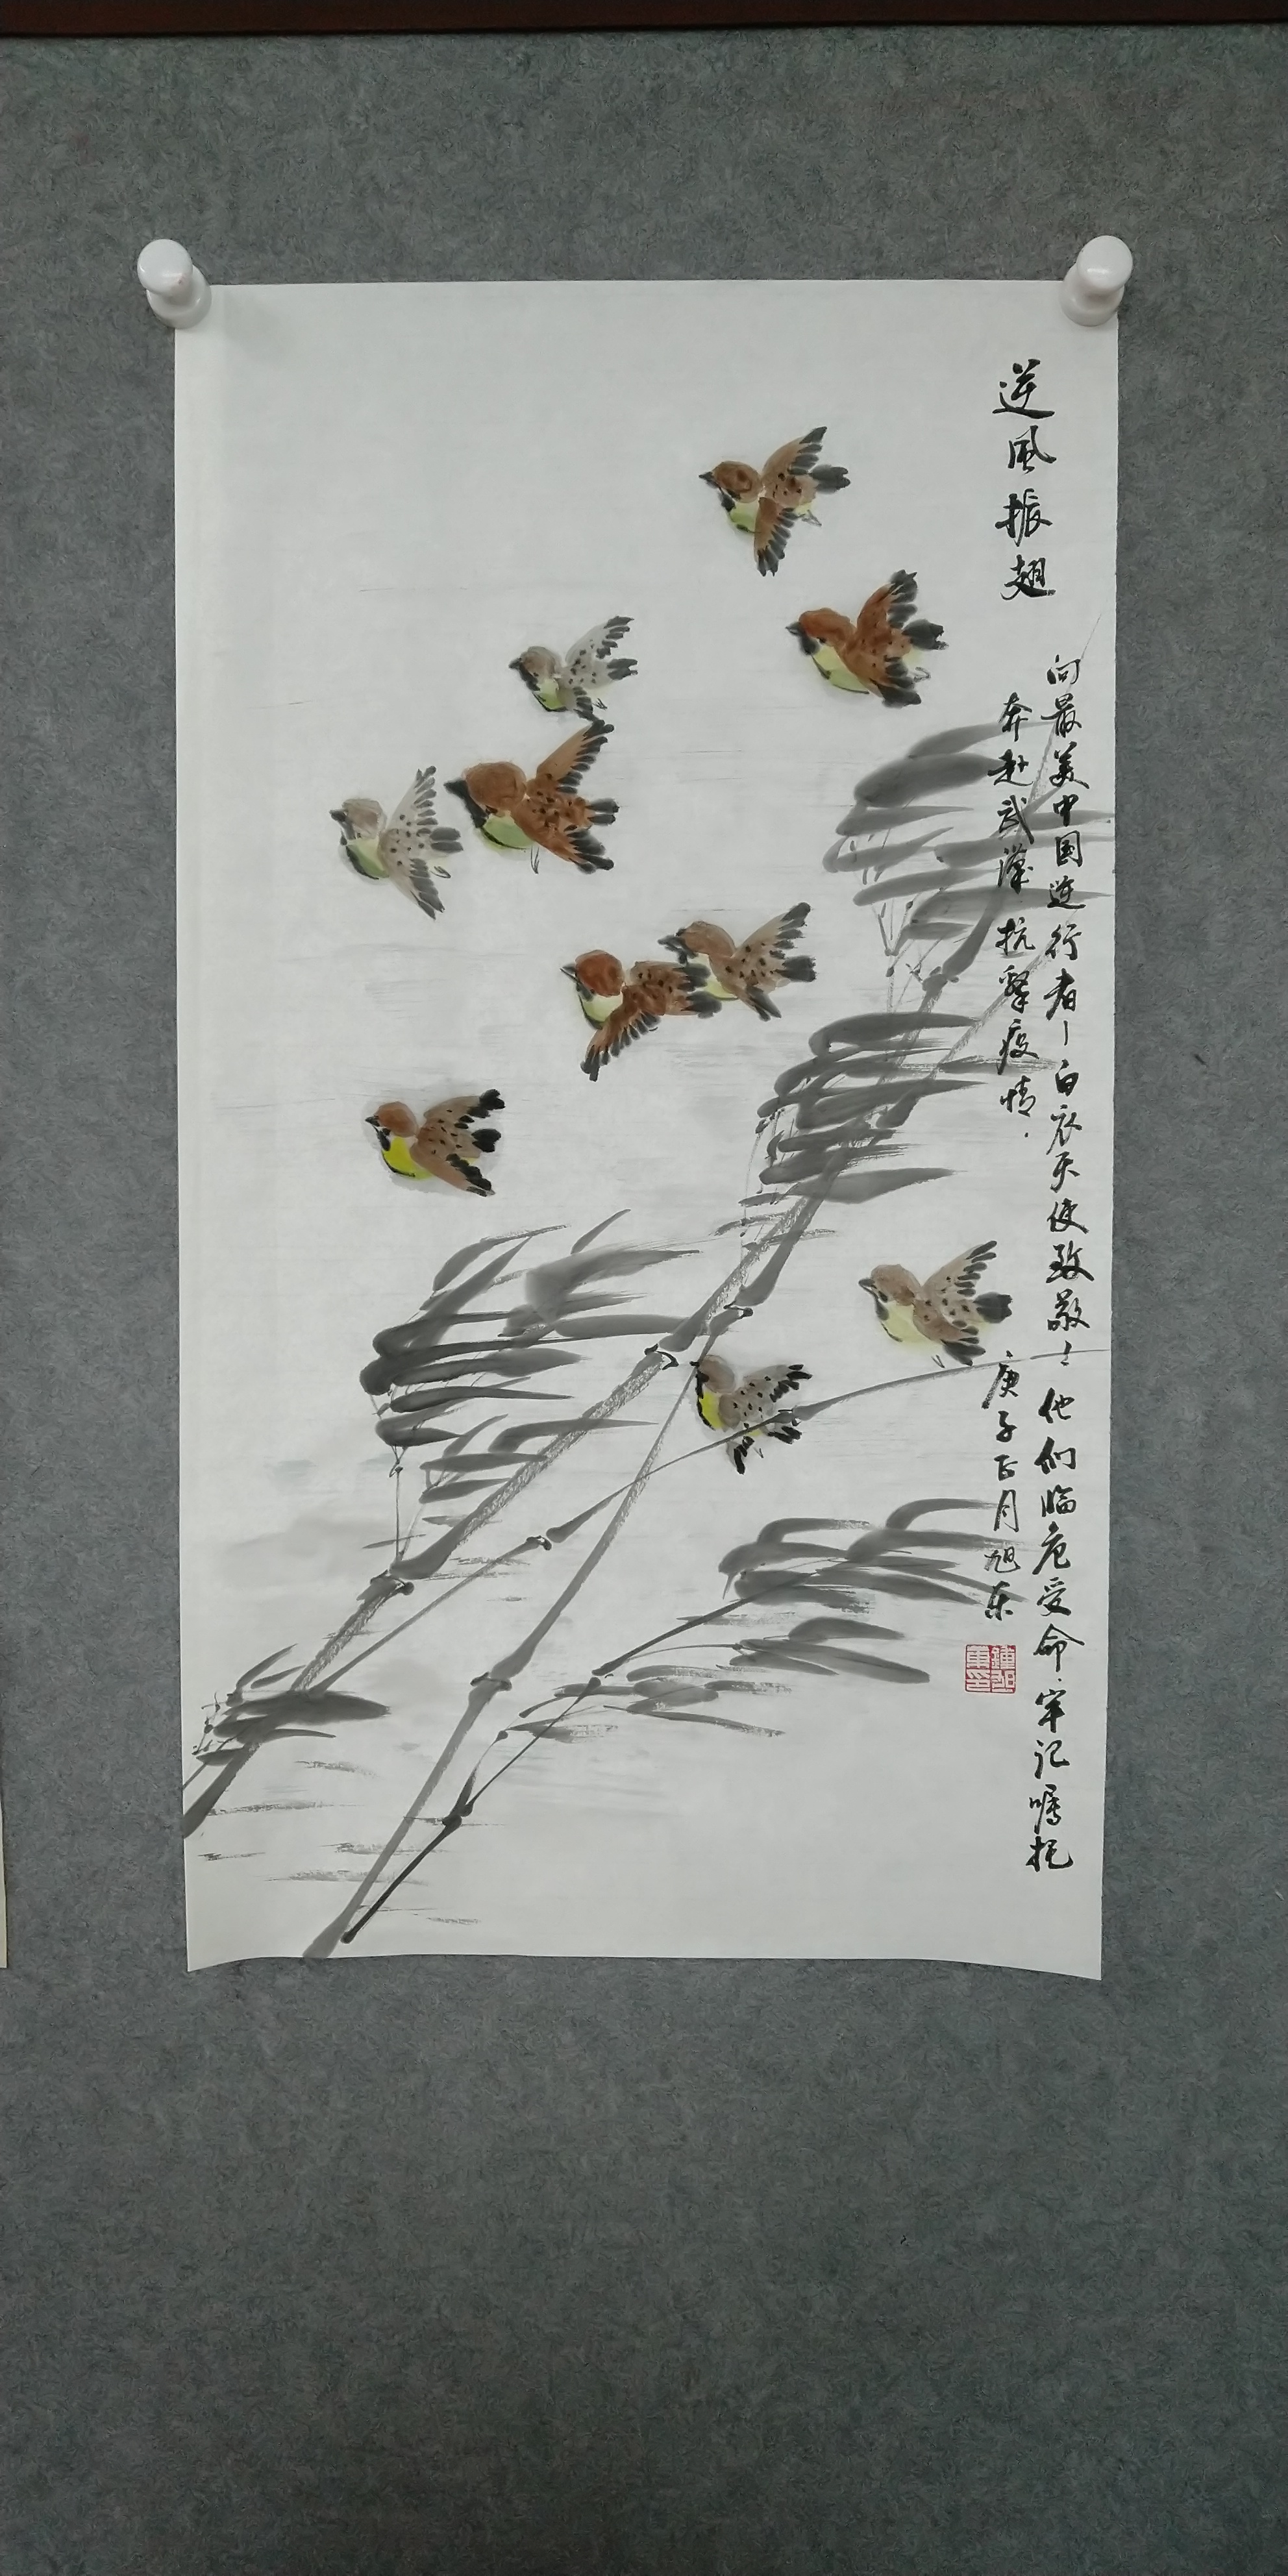 逆風振翅
向最美中国逆行者—白衣天使致敬！他们临危受命.牢记嘱托
奔赴武漢抗擊疫情.
庚子正月旭东